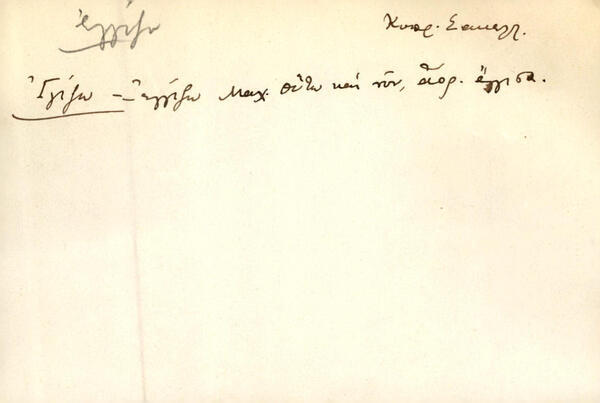 ἐγγίζω
Κυπρ. Σακελλ.
Ἰγίζω – ἐγγίζω Μαχ. οὕτω καὶ νῦν, ἀόρ. ἔγγισα.